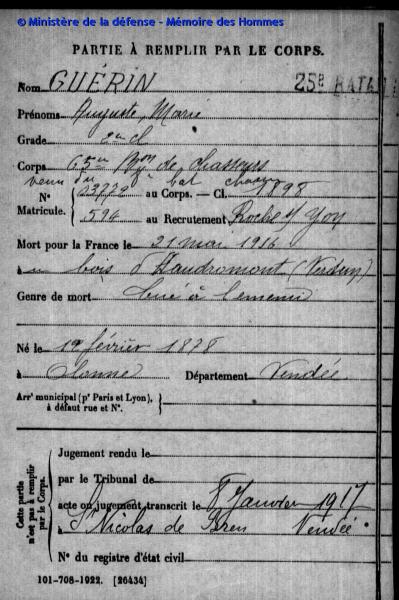 © Ministère de la défense - Mémoire des Hommes
PARTIE À REMPLIR PAR LE CORPS.
Nom GUÉRIN
25e BATA
Prénoms Auguste, Marie
Grade 2e cl
Corps 65me Bon de chasseurs
venu du bat chasseurs
N° 23772 au Corps. — Cl. 1898
Matricule. 594 au Recrutement Roche s/ Yon
Mort pour la France le 21 mai 1916
au bois d'Haudromont (Verdun)
Genre de mort tué à l'ennemi
Né le 12 février 1878
à Olonne Département Vendée
Arrt municipal (pr Paris et Lyon), à défaut rue et N°.
Cette partie n'est pas à remplir par le Corps.
Jugement rendu le
par le Tribunal de
acte ou jugement transcrit le 8 Janvier 1917
à St Nicolas de Brem Vendée
N° du registre d'état civil
101-708-1922. [26434]